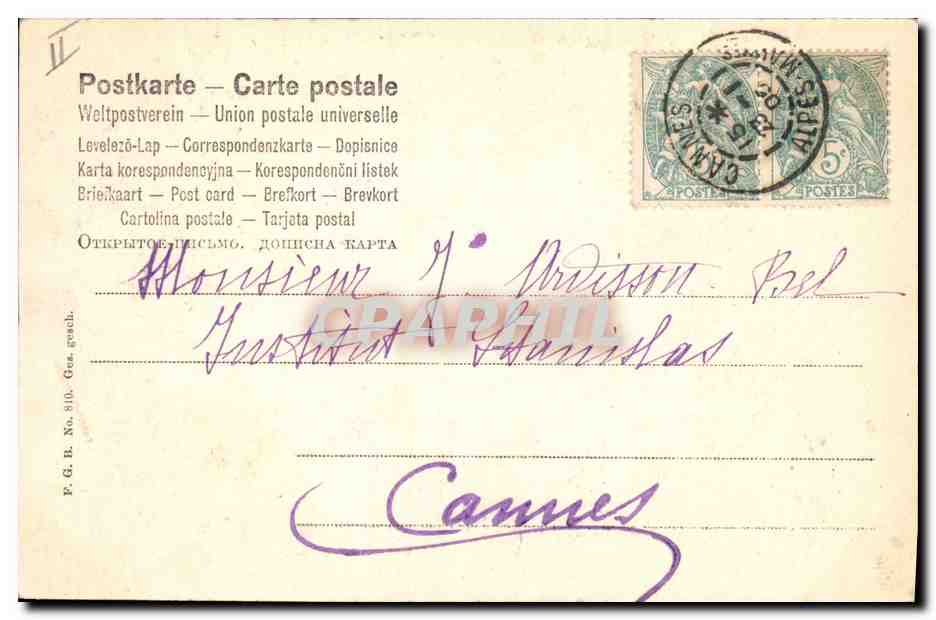 II
Postkarte — Carte postale
Weltpostverein — Union postale universelle
Levelező-Lap — Correspondenzkarte — Dopisnice
Karta korespondencyjna — Korespondenční lístek
Briefkaart — Post card — Brefkort — Brevkort
Cartolina postale — Tarjeta postal
Открытое письмо. дописна карта
5c
POSTES POSTES
CANNES ALPES-MARMES
15 13 -1 05
Monsieur J. Ardisson Bel
Institut Stanislas
Cannes
F. G. B. No. 810. Ges. gesch.
CPAPHIL